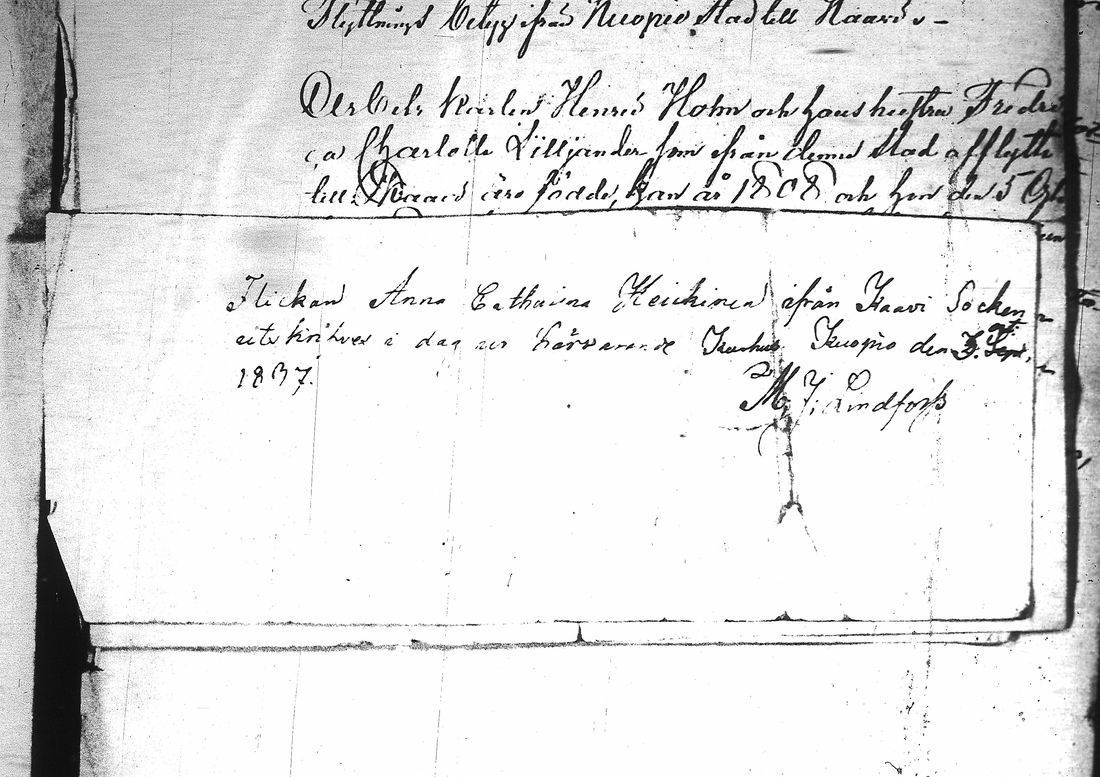 Flyttnings betyg ifrån Kuopio Stad till Kaavi.
Arbets Karlen Henric Holm och hans hustru Fredri
ca Charlotta Lilljander som ifrån denne Stad afflytta
till Kaavi äro födde, han år 1808 och hon den 5
Flickan Anna Catharina Heickinen ifrån Kaavi Socken
utskrifves i dag ur härvarande Kuopio den Sept.
1837.
M. J. Lindfors